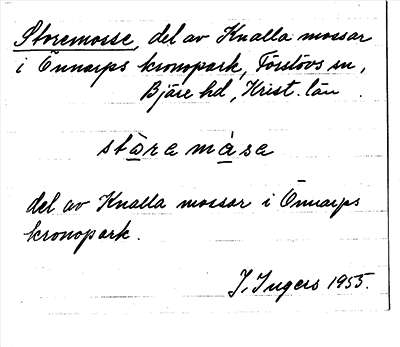 Storemosse, del av Knalla mossar
i Önnarps kronopark, Förslövs sn,
Bjäre hd, Krist. län.
stòra mása
del av Knalla mossar i Önnarps
kronopark.
J. Ingers 1955.